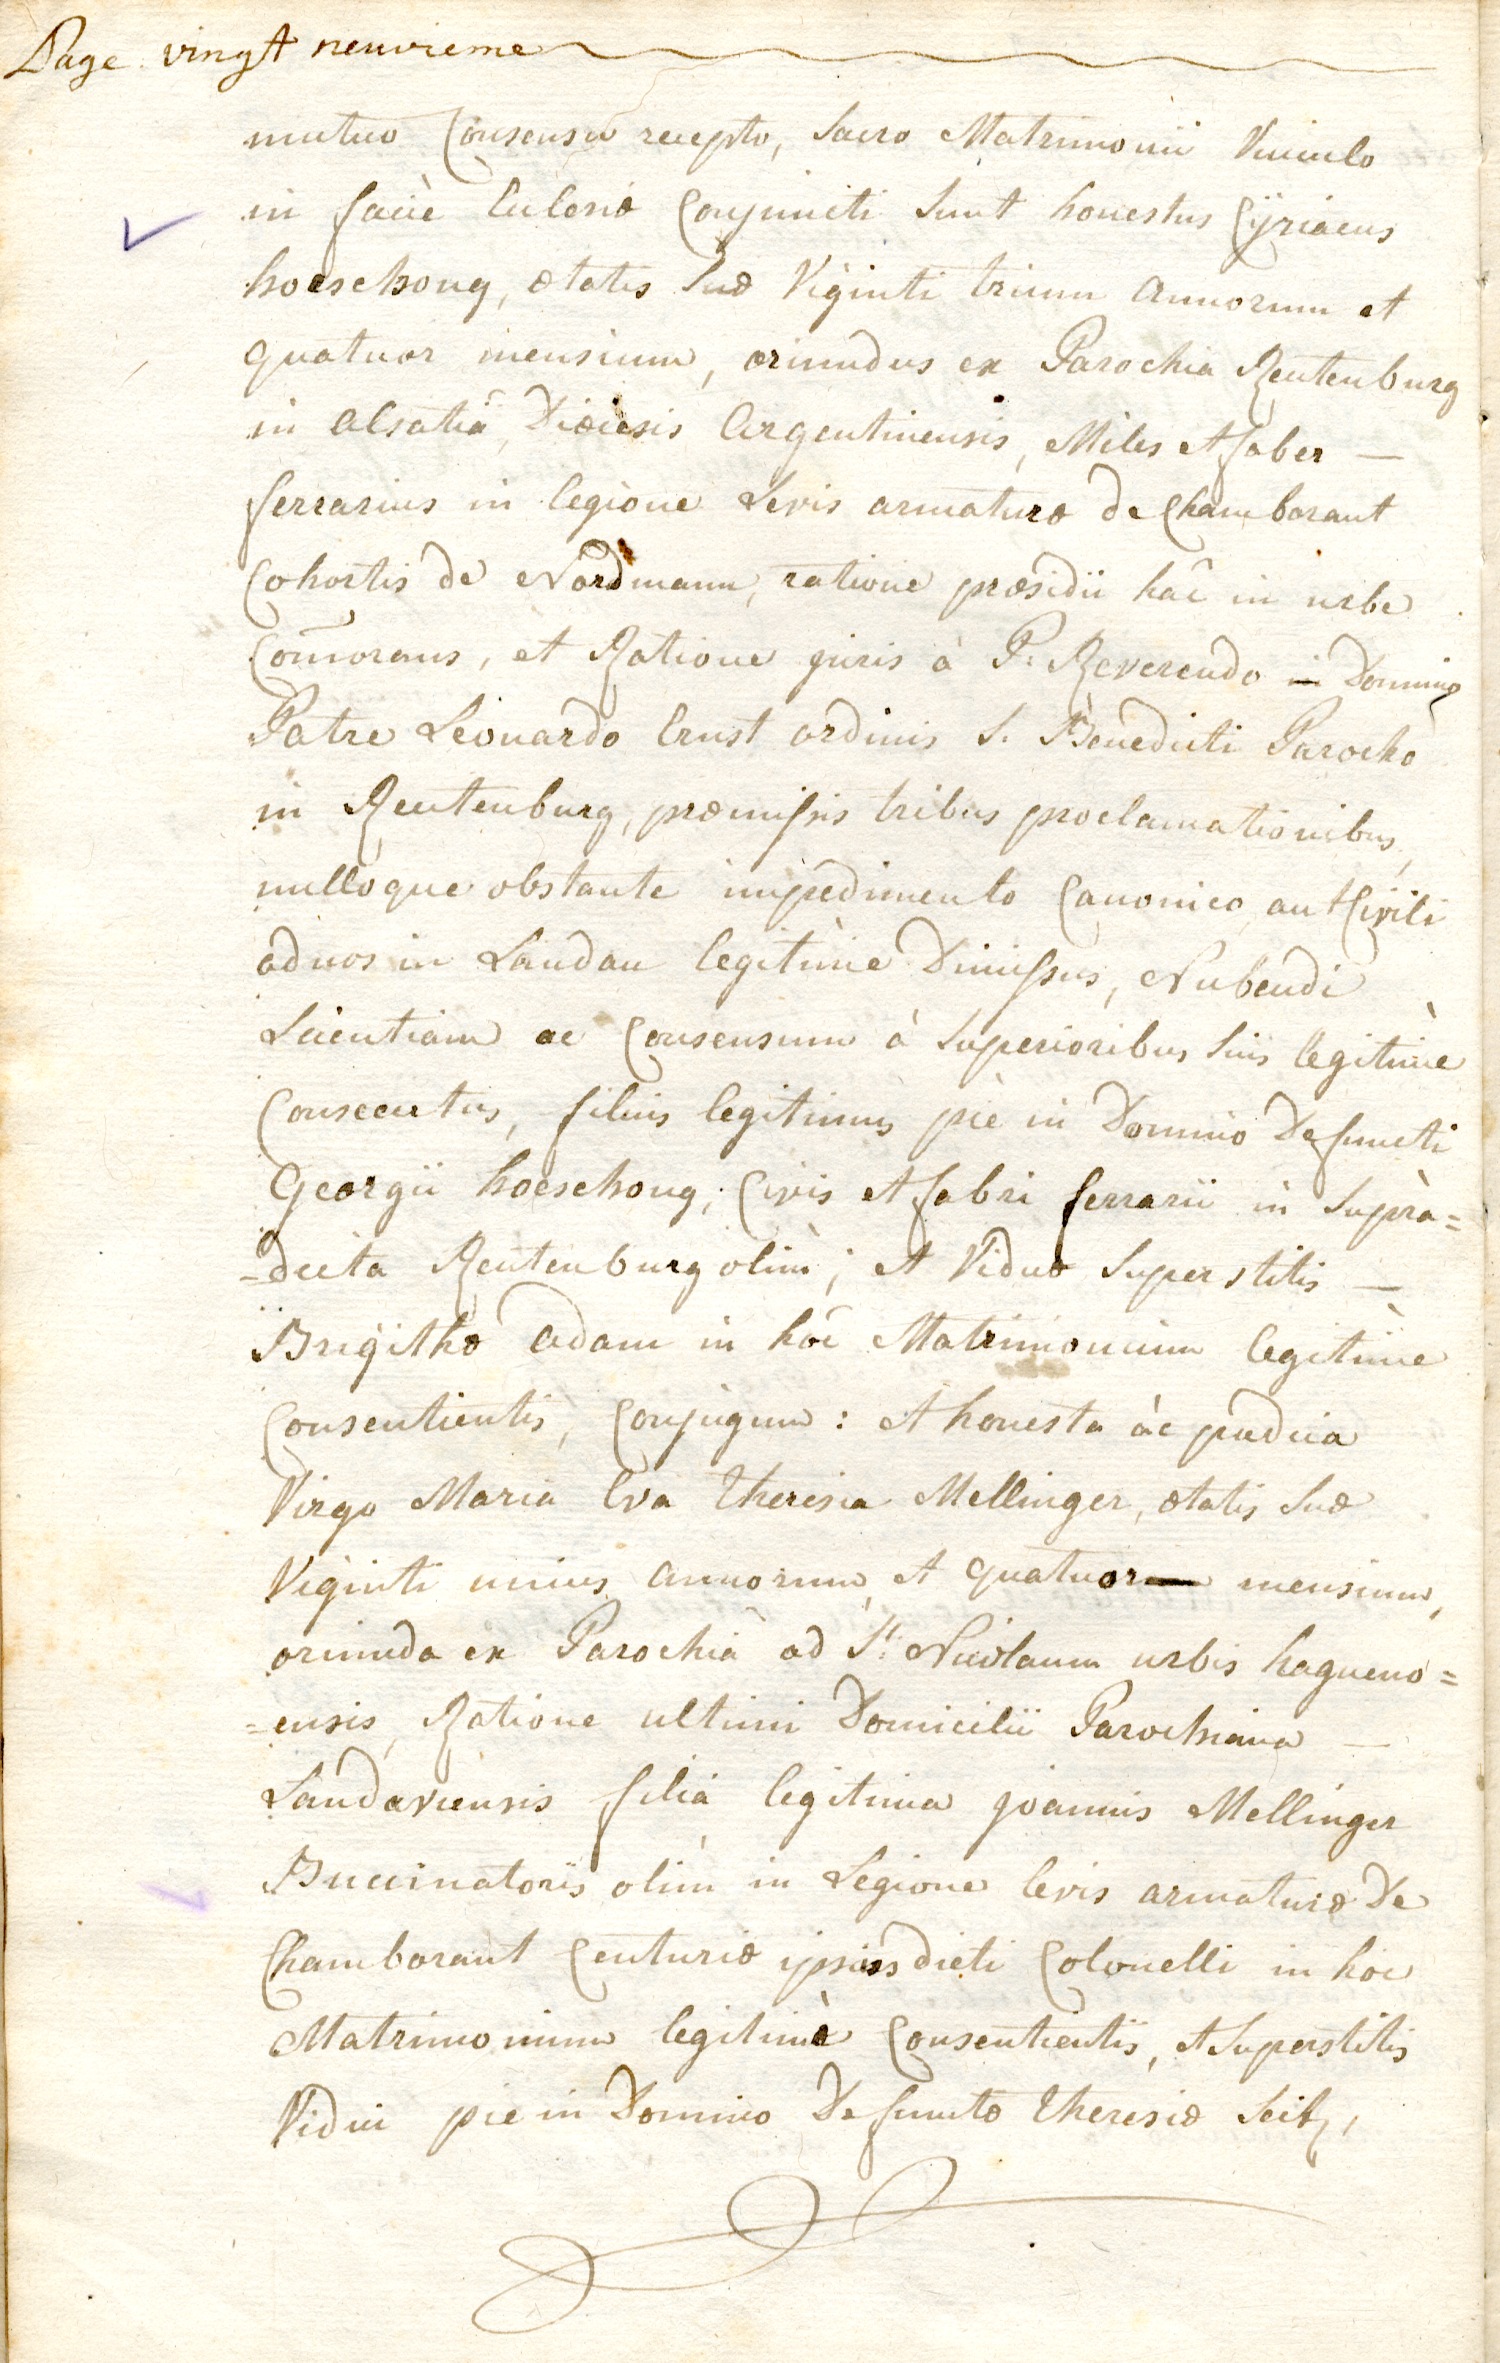 Page vingt neuvieme
mutuo Consensu recepto, Sacro Matrimonii Vinculo
in faciè Eclesiæ Conjuncti Sunt honestus Cÿriacus
hoeschong, ætatis Suæ Viginti trium Annorum et
quatuor mensium, oriundus ex Parochia Reutenburg
in Alsatiâ, Dioecesis Argentinensis, Miles et faber —
ferrarius in legione Levis armaturæ de Chamborant
Cohortis de Nordmann, ratione præsidii hâc in urbe
Com̃orans, et Ratione juris à P: Reverendo Domino
Patre Leonardo Ernst ordinis S. Benedicti Parocho
in Reutenburg, præmissis tribus proclamationibus,
nulloque obstante impedimento Canonico aut Civili
ad nos in Landau legitimè Dimissus, Nubendi
Licentiam ac Consensum à Superioribus Suis legitimè
Consecutus, filius legitimus piè in Domino Defuncti
Georgii hoeschong, Civis et fabri ferrarii in Suprà=
=dicta Reutenburg olim; et Viduæ Superstitis —
Brigithæ Adam in hôc Matrimonium legitimè
Consentientis, Conjugum: et honesta àc pudica
Virgo Maria Eva Theresia Mellinger, ætatis Suæ
Viginti unius annorum, et quatuor mensium,
oriunda ex Parochià ad St. Nicolaum urbis hagueno=
=ensis, Ratione ultimi Domicilii Parochiana —
Landaviensis filia legitima joannis Mellinger
Buccinatoris olim in Legione levis armaturæ De
Chamborant Centuriæ ipsius dicti Colonelli in hoc
Matrimonium legitimè Consentientis, et Superstitis
Vidui pie in Domino Defunctæ Theresiæ Seitz,